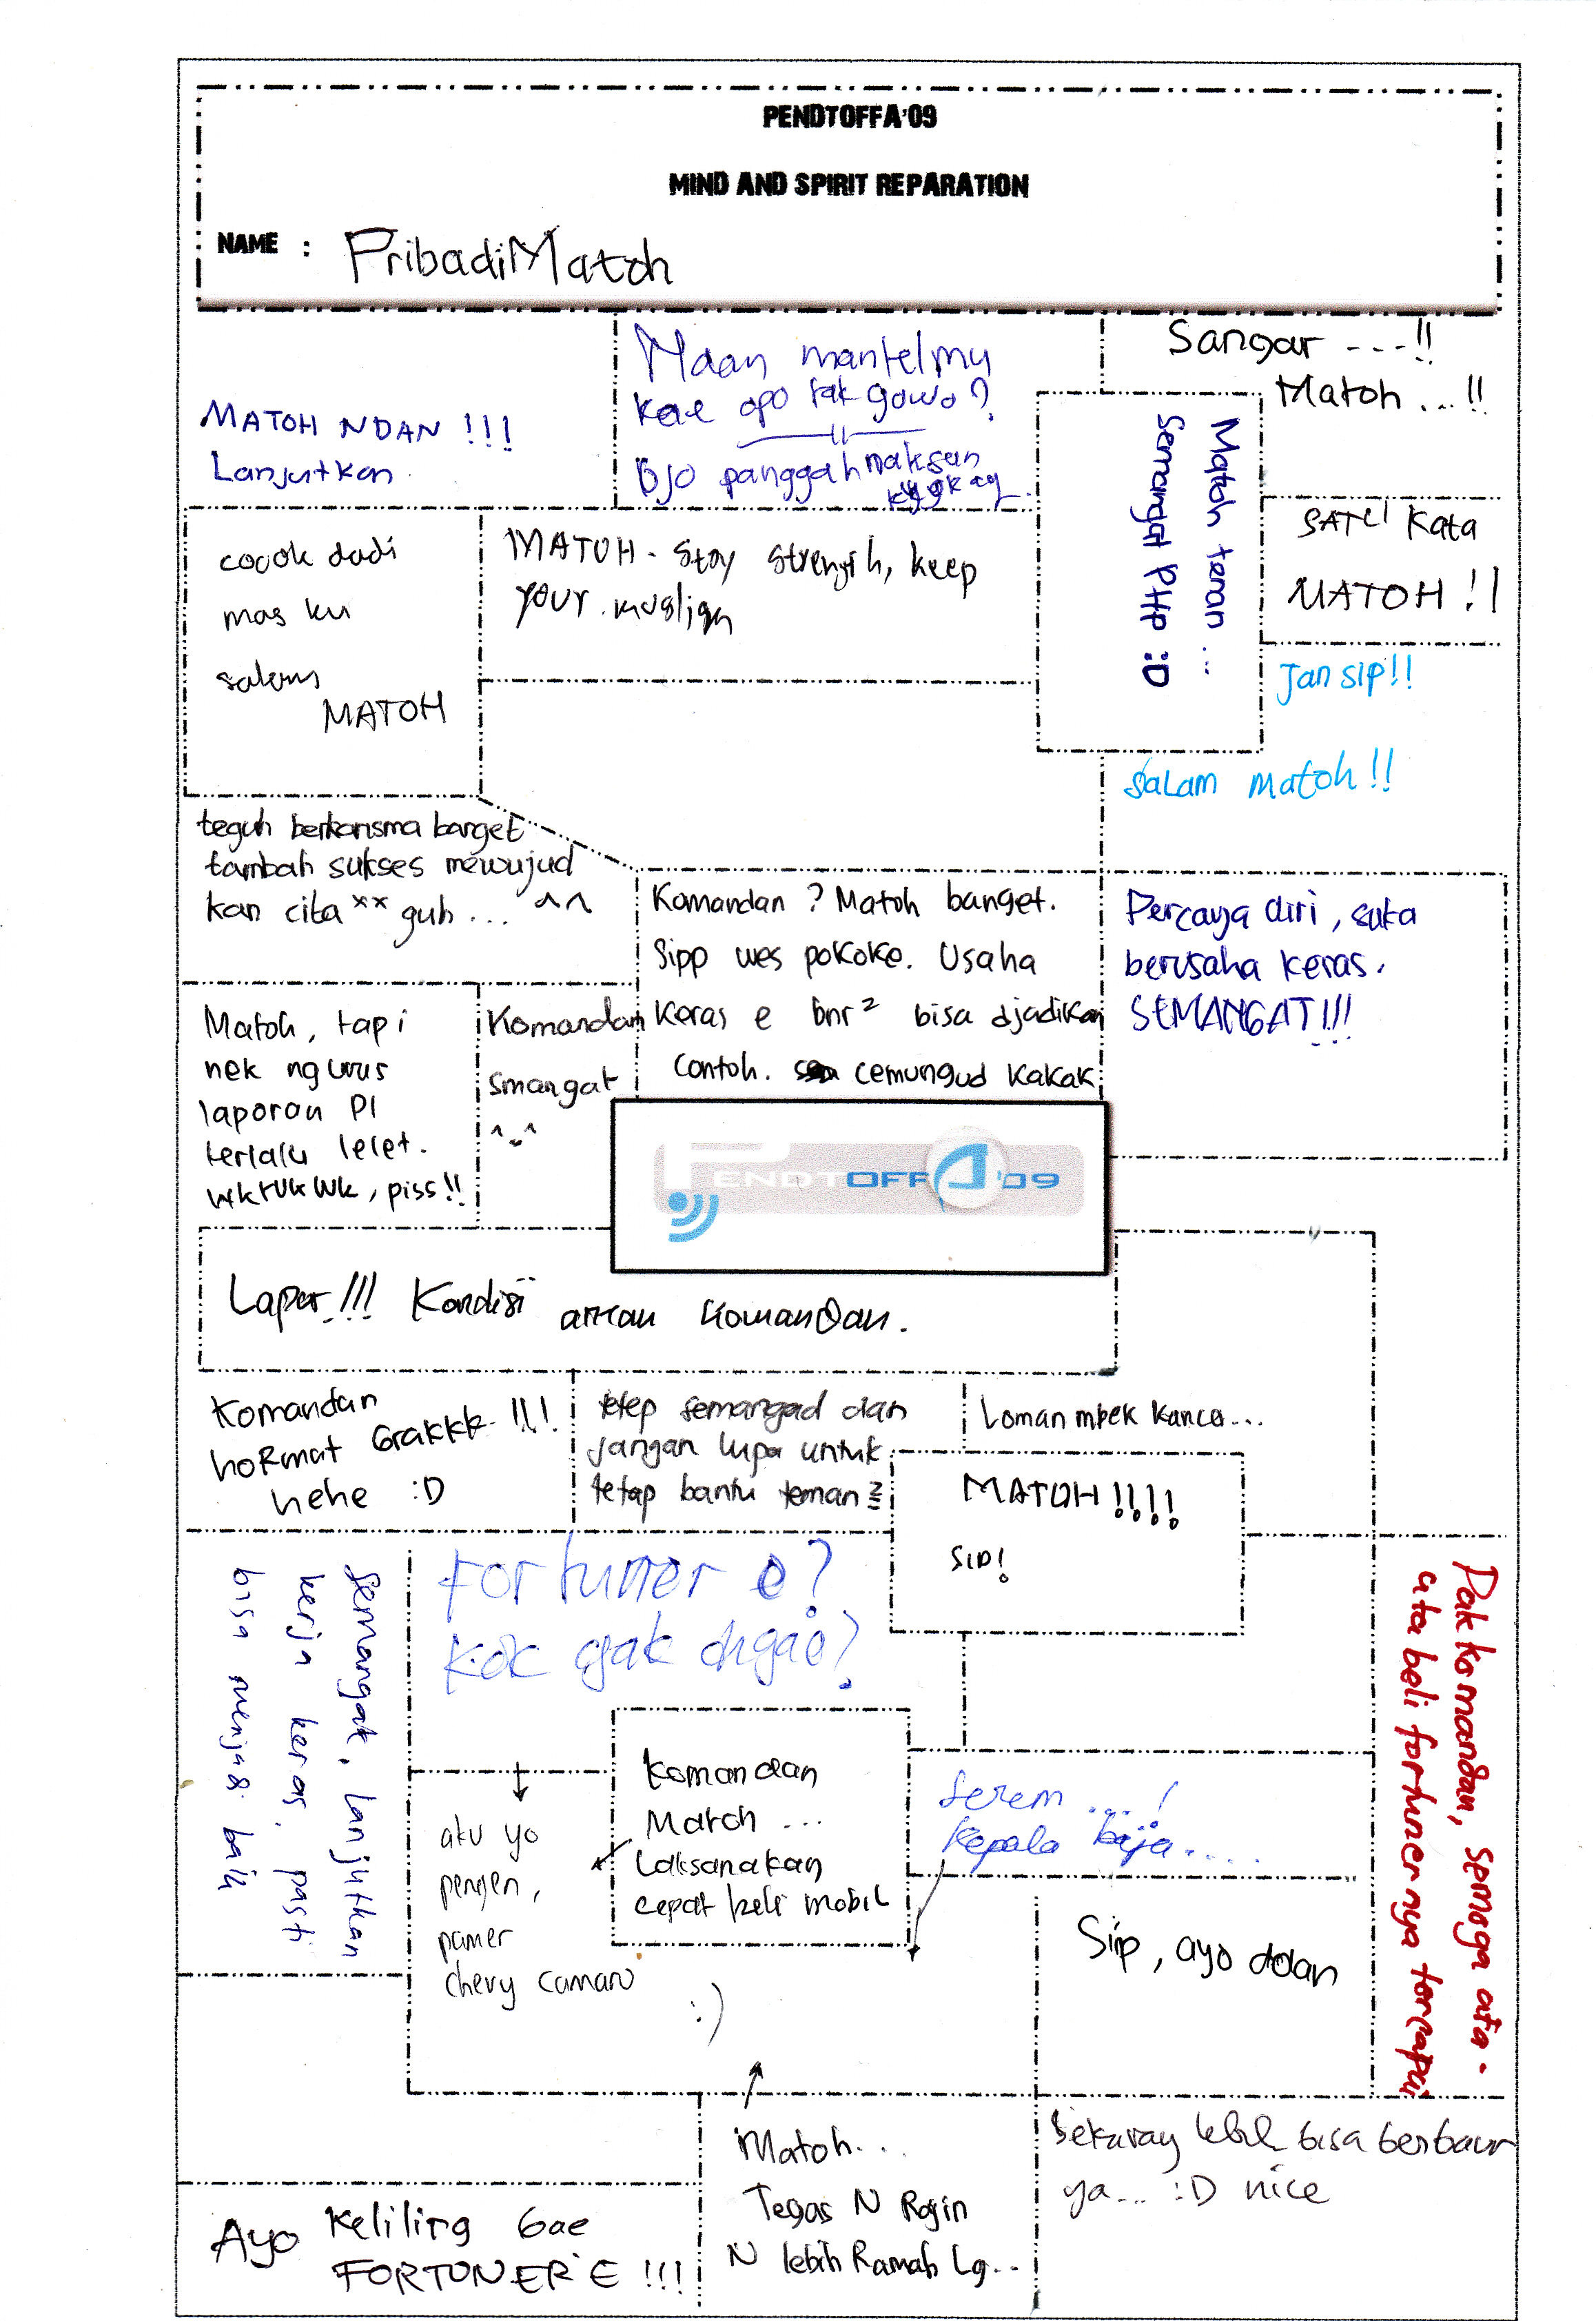 PENDTOFFA'09
MIND AND SPIRIT REPARATION
NAME : Pribadi Matoh
MATOH NDAN !!!
Lanjutkan
Ndan mantelmu
kae opo tak gowo?
Ojo panggah maksan
Sangar ---!!
Matoh ...!!
Matoh tenan ...
Semangat PHP :D
SATU Kata
MATOH !!
Jan sip!!
salam matoh!!
cocok dadi
mas ku
salam
MATOH
MATOH - Stay strength, keep
your
teguh berkarisma banget
tambah sukses mewujud
kan cita** guh ... ^^
Komandan ? Matoh banget.
Sipp wes pokoke. Usaha
Keras e bnr² bisa djadikan
Contoh. cemungud kakak
Percaya diri, suka
berusaha keras.
SEMANGAT!!!
Matoh, tapi
nek ngurus
laporan PI
terlalu lelet.
wkwkwk, piss!!
Komandan
Smangat
^_^
PENDTOFFA'09
Laper!!! Kondisi aman komandan.
Komandan
hormat Grakkk !!!
hehe :D
tetep semangad dan
jangan lupa untuk
tetap bantu teman2
Loman mbek kanca...
MATOH!!!!
SIP!
Semangat, lanjutkan
kerja keras, pasti
bisa menjadi baik
Fortuner e?
Kok gak digae?
Pak komandan, semoga cita-
cita beli fortunernya tercapai
aku yo
pengen,
pamer
chevy camaro
Komandan
Matoh ...
Laksanakan
cepat beli mobil
Serem ....!
Kepala baja.....
Sip, ayo ndan
:)
Matoh...
Tegas N Rajin
N lebih Ramah Lg...
Sekarang lebih bisa berbaur
ya... :D nice
Ayo Keliling Gae
FORTUNER'E !!!